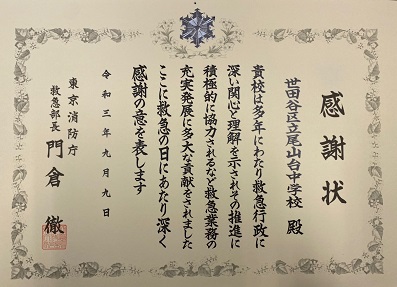 感謝状
世田谷区立尾山台中学校 殿
貴校は多年にわたり救急行政に
深い関心と理解を示されその推進に
積極的に協力されるなど救急業務の
充実発展に多大な貢献をされました
ここに救急の日にあたり深く
感謝の意を表します
令和三年九月九日
東京消防庁
救急部長 門倉 徹